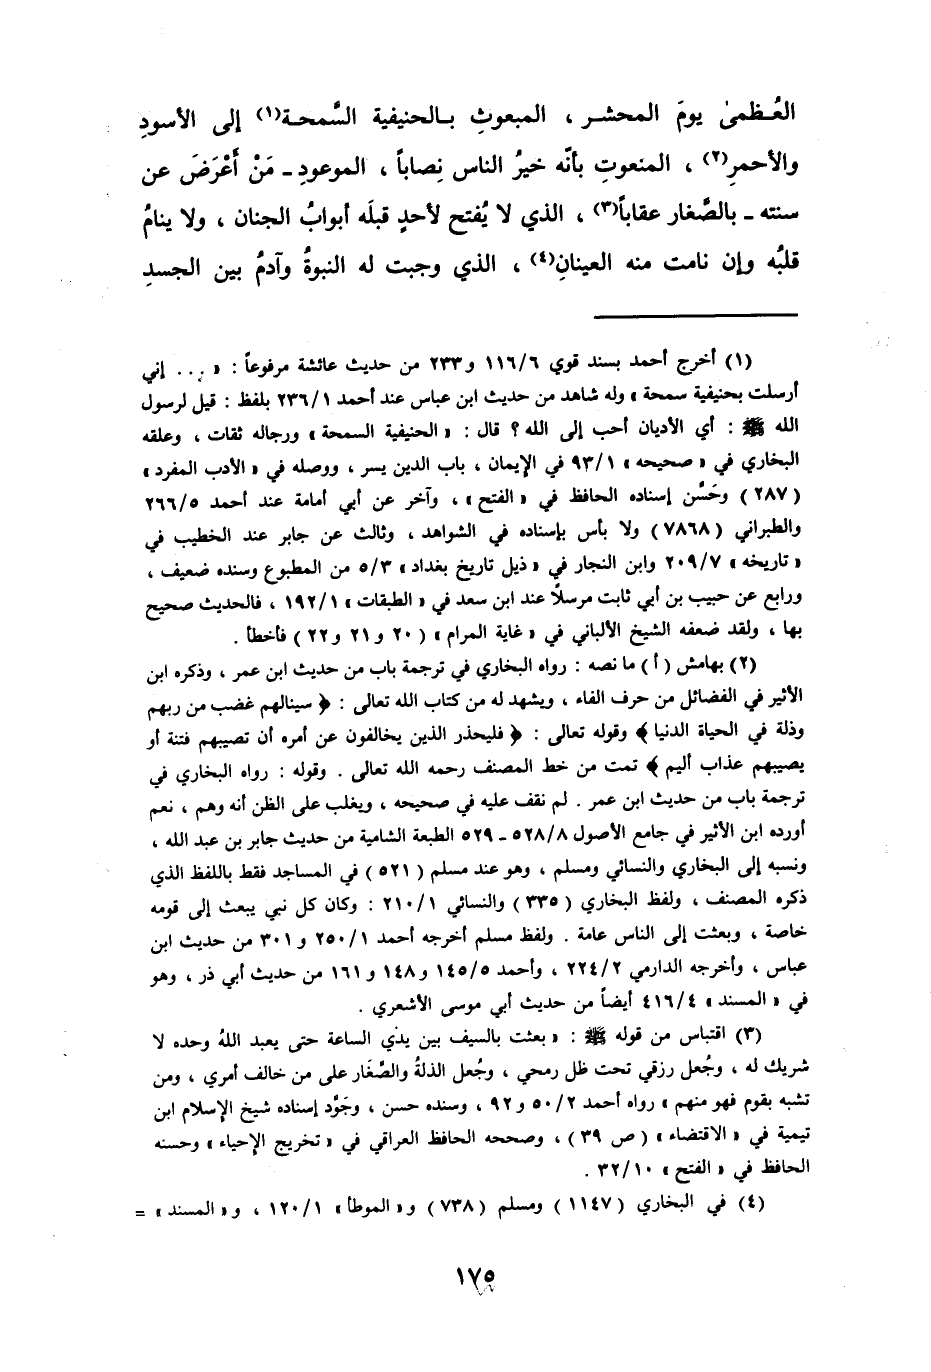 العُظمىٰ يومَ المحشر ، المبعوثِ بالحنيفية السَّمحة(١) إلى الأسودِ
والأحمرِ(٢) ، المنعوتِ بأنّه خيرُ الناس نِصاباً ، الموعودِ ـ مَنْ أَعْرَضَ عن
سنته ـ بالصَّغار عقاباً(٣) ، الذي لا يُفتح لأحدٍ قبلَه أبوابُ الجنان ، ولا ينامُ
قلبُه وإن نامت منه العينانِ(٤) ، الذي وجبت له النبوةُ وآدمُ بين الجسدِ
(١) أخرج أحمد بسند قوي ١١٦/٦ و٢٣٣ من حديث عائشة مرفوعاً : « ... إني
أرسلت بحنيفية سمحة » وله شاهد من حديث ابن عباس عند أحمد ٢٣٦/١ بلفظ : قيل لرسول
الله ﷺ : أي الأديان أحب إلى الله ؟ قال : « الحنيفية السمحة » ورجاله ثقات ، وعلقه
البخاري في « صحيحه » ٩٣/١ في الإيمان ، باب الدين يسر ، ووصله في « الأدب المفرد »
( ٢٨٧ ) وحَسَّن إسناده الحافظ في « الفتح » ، وآخر عن أبي أمامة عند أحمد ٢٦٦/٥
والطبراني ( ٧٨٦٨ ) ولا بأس بإسناده في الشواهد ، وثالث عن جابر عند الخطيب في
« تاريخه » ٢٠٩/٧ وابن النجار في « ذيل تاريخ بغداد » ٥/٣ من المطبوع وسنده ضعيف ،
ورابع عن حبيب بن أبي ثابت مرسلاً عند ابن سعد في « الطبقات » ١٩٢/١ ، فالحديث صحيح
بها ، ولقد ضعفه الشيخ الألباني في « غاية المرام » ( ٢٠ و٢١ و٢٢ ) فأخطأ .
(٢) بهامش ( أ ) ما نصه : رواه البخاري في ترجمة باب من حديث ابن عمر ، وذكره ابن
الأثير في الفضائل من حرف الفاء ، ويشهد له من كتاب الله تعالى : ﴿ سينالهم غضب من ربهم
وذلة في الحياة الدنيا ﴾ وقوله تعالى : ﴿ فليحذر الذين يخالفون عن أمره أن تصيبهم فتنة أو
يصيبهم عذاب أليم ﴾ تمت من خط المصنف رحمه الله تعالى . وقوله : رواه البخاري في
ترجمة باب من حديث ابن عمر . لم نقف عليه في صحيحه ، ويغلب على الظن أنه وهم ، نعم
أورده ابن الأثير في جامع الأصول ٥٢٨/٨ ـ ٥٢٩ الطبعة الشامية من حديث جابر بن عبد الله ،
ونسبه إلى البخاري والنسائي ومسلم ، وهو عند مسلم ( ٥٢١ ) في المساجد فقط باللفظ الذي
ذكره المصنف ، ولفظ البخاري ( ٣٣٥ ) والنسائي ٢١٠/١ : وكان كل نبي يبعث إلى قومه
خاصة ، وبعثت إلى الناس عامة . ولفظ مسلم أخرجه أحمد ٢٥٠/١ و ٣٠١ من حديث ابن
عباس ، وأخرجه الدارمي ٢٢٤/٢ ، وأحمد ١٤٥/٥ و١٤٨ و١٦١ من حديث أبي ذر ، وهو
في « المسند » ٤١٦/٤ أيضاً من حديث أبي موسى الأشعري .
(٣) اقتباس من قوله ﷺ : « بعثت بالسيف بين يدَي الساعة حتى يعبد اللهُ وحده لا
شريك له ، وجُعل رزقي تحت ظل رمحي ، وجُعل الذلةُ والصَّغَار على من خالف أمري ، ومن
تشبه بقوم فهو منهم » رواه أحمد ٥٠/٢ و٩٢ ، وسنده حسن ، وجَوَّد إسناده شيخ الإسلام ابن
تيمية في « الاقتضاء » ( ص ٣٩ ) ، وصححه الحافظ العراقي في « تخريج الإحياء » وحسنه
الحافظ في « الفتح » ٣٢/١٠ .
(٤) في البخاري ( ١١٤٧ ) ومسلم ( ٧٣٨ ) و« الموطأ » ١٢٠/١ ، و« المسند » =
١٧٥